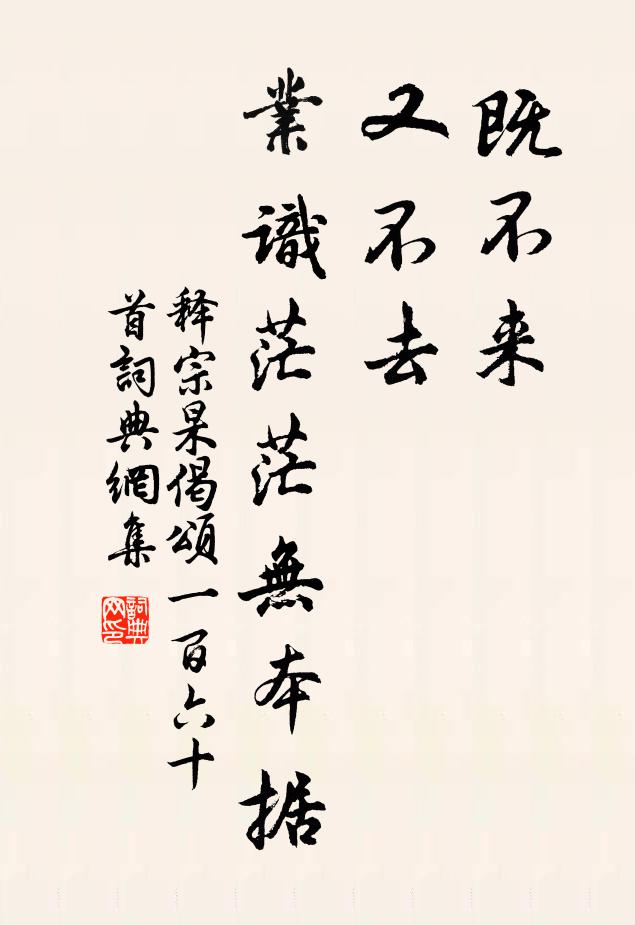 既不来
又不去
業識茫茫無本据
释宗杲偈頌一百六十
首詞典網集
詞典网印